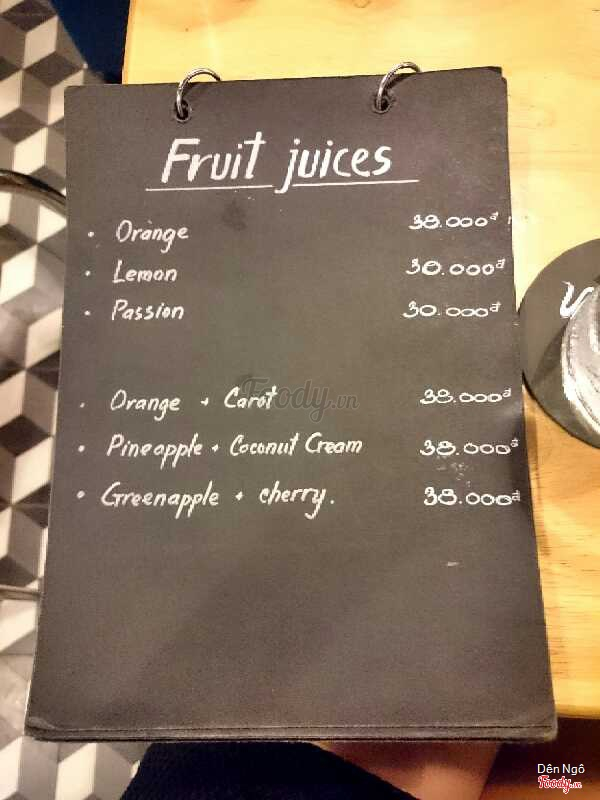 Fruit juices
• Orange 38.000đ
• Lemon 30.000đ
• Passion 30.000đ
• Orange + Carot 38.000đ
Foody.vn
• Pineapple + Coconut Cream 38.000đ
• Greenapple + cherry. 38.000đ
Dên Ngô
Foody.vn